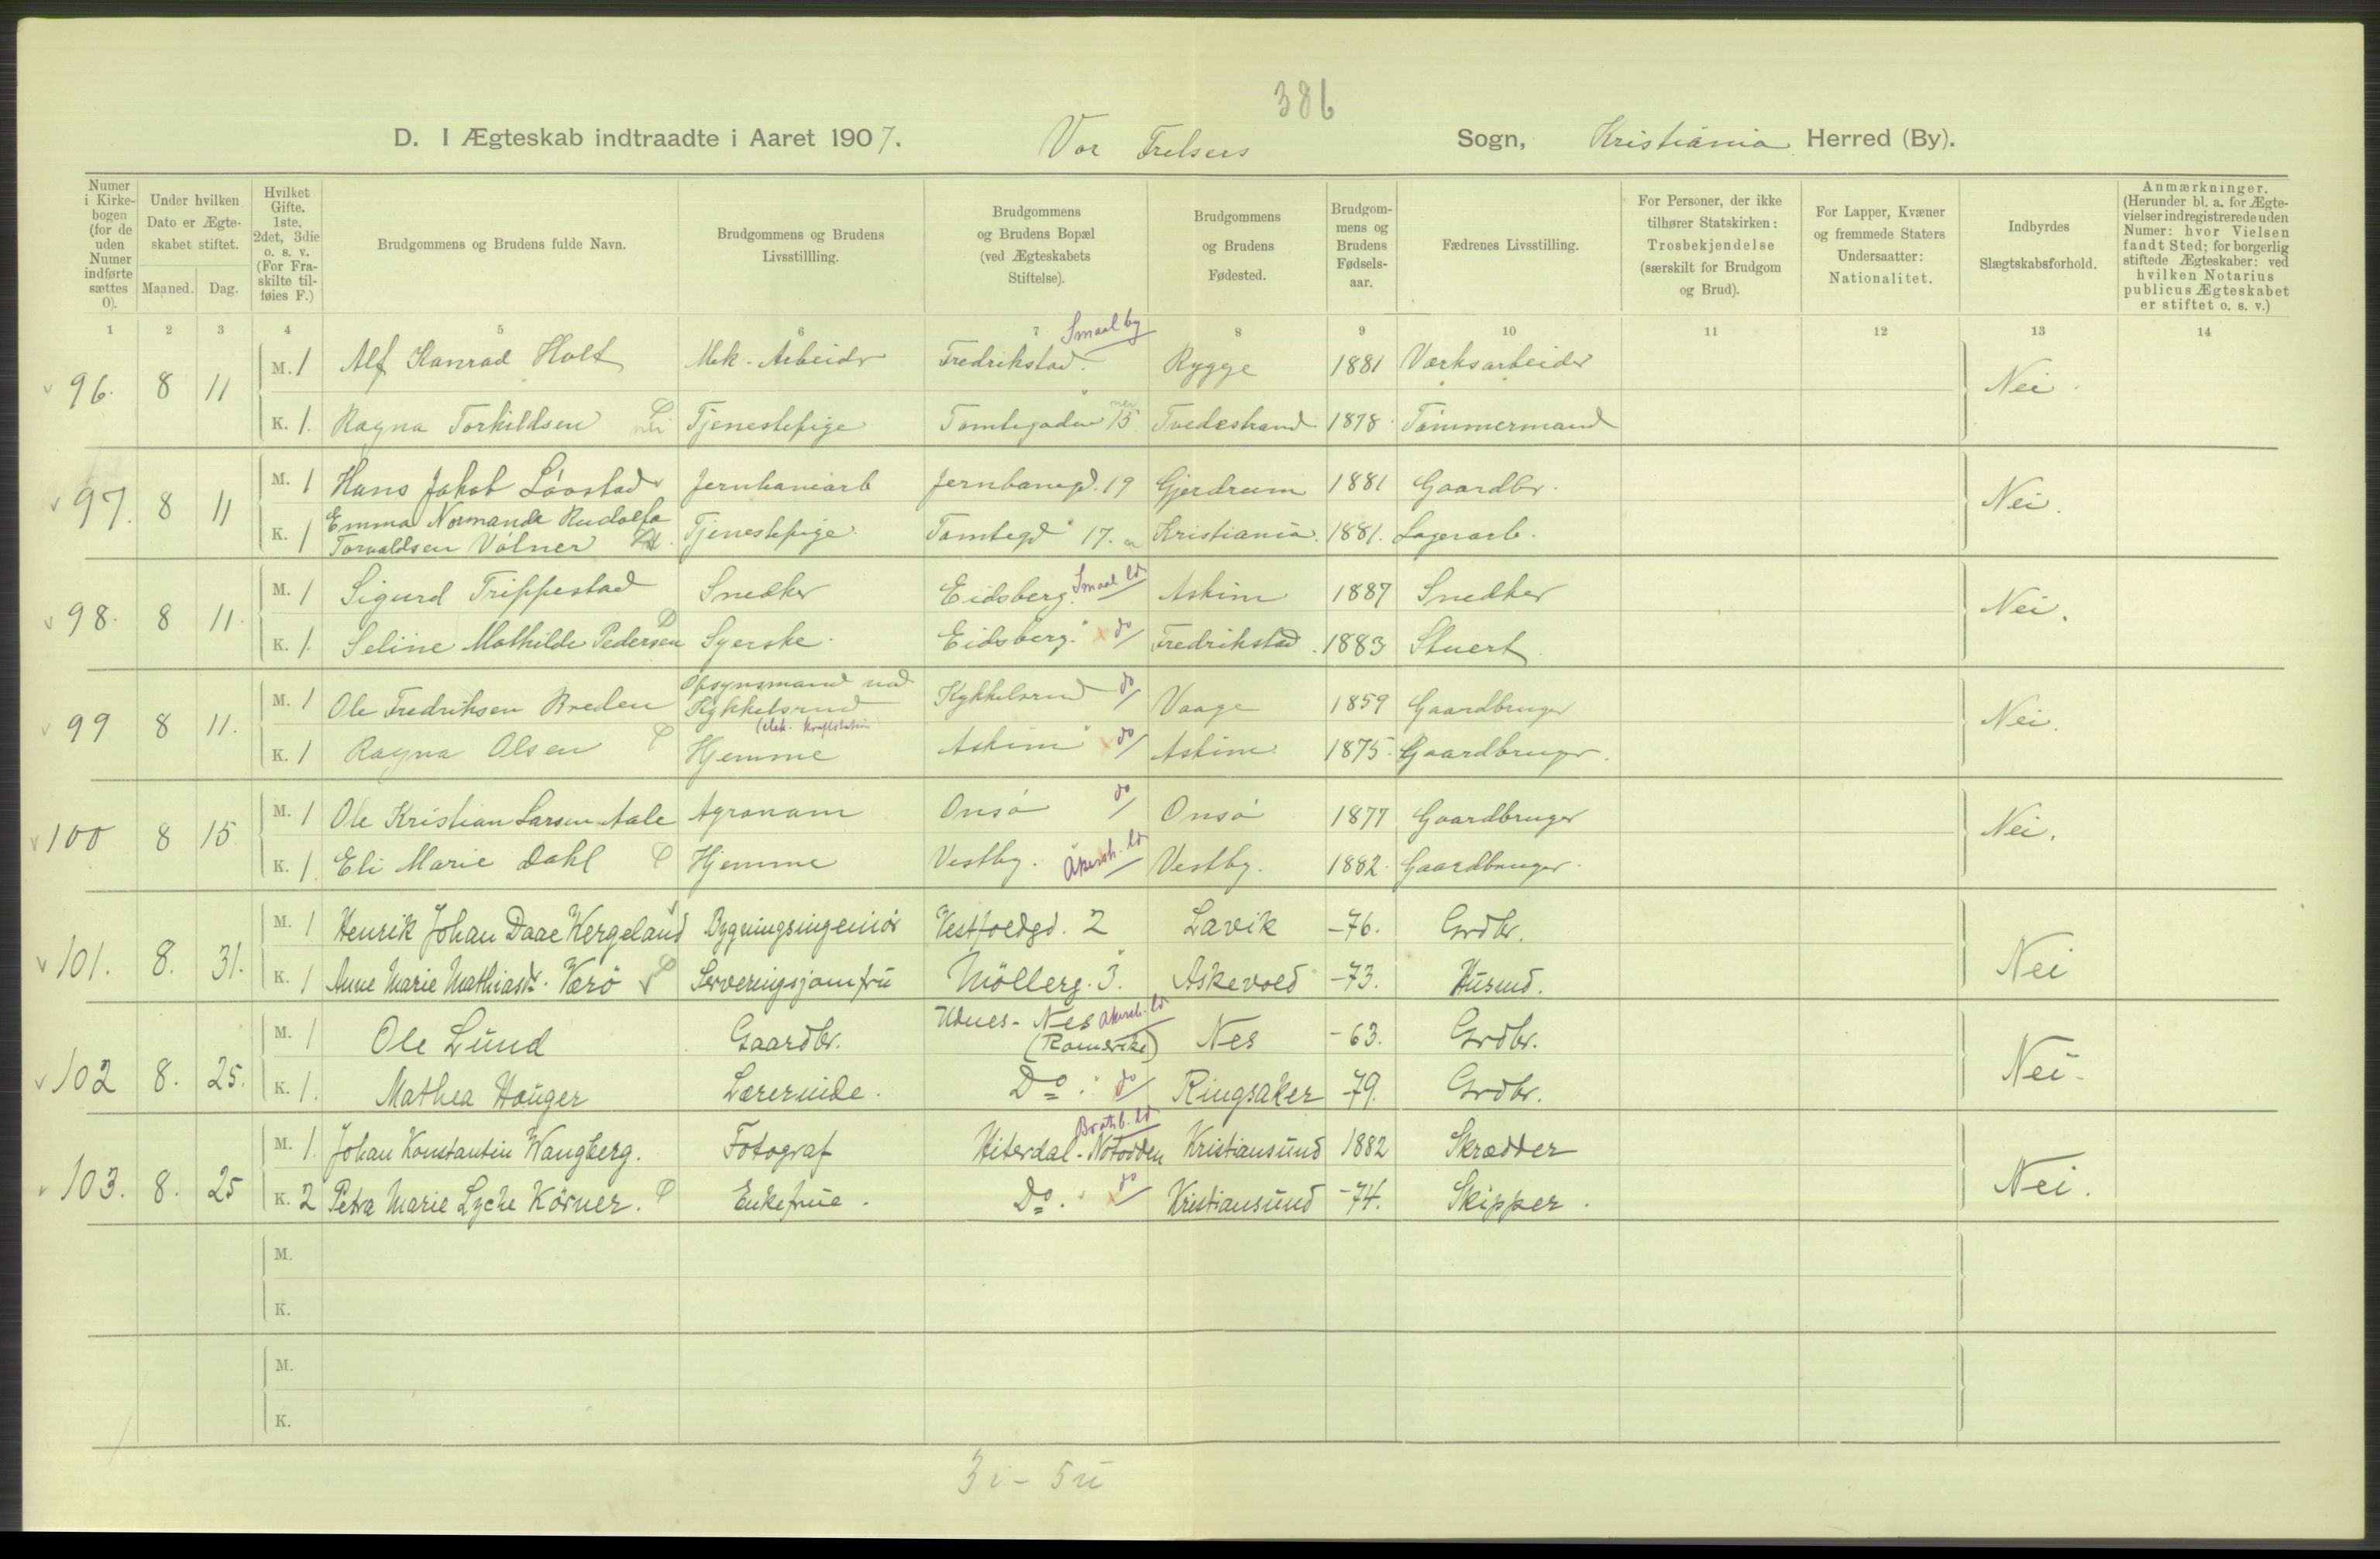 386
D. I Ægteskab indtraadte i Aaret 1907. Vor Frelsers Sogn, Kristiania Herred (By).
Numer i Kirkebogen (for de uden Numer indførte sættes 0).
Under hvilken Dato er Ægteskabet stiftet.
Maaned. Dag.
Hvilket Gifte. 1ste, 2det, 3die o. s. v. (For Fraskilte tilføies F.)
Brudgommens og Brudens fulde Navn.
Brudgommens og Brudens Livsstillling.
Brudgommens og Brudens Bopæl (ved Ægteskabets Stiftelse).
Brudgommens og Brudens Fødested.
Brudgommens og Brudens Fødselsaar.
Fædrenes Livsstilling.
For Personer, der ikke tilhører Statskirken: Trosbekjendelse (særskilt for Brudgom og Brud).
For Lapper, Kvæner og fremmede Staters Undersaatter: Nationalitet.
Indbyrdes Slægtskabsforhold.
Anmærkninger. (Herunder bl. a. for Ægtevielser indregistrerede uden Numer: hvor Vielsen fandt Sted; for borgerlig stiftede Ægteskaber: ved hvilken Notarius publicus Ægteskabet er stiftet o. s. v.)
1 2 3 4 5 6 7 8 9 10 11 12 13 14
Smaal by
96. 8 11 M. 1 Alf Konrad Holt Mek-Arbeider Fredrikstad Rygge 1881 Værksarbeider Nei
K. 1. Ragna Torkildsen Tjenestepige Tomtegaden 15 Tvedestrand 1878 Tömmermand
97. 8 11 M. 1 Hans Jakob Lövstad Jernbanearb Jernbanegd. 19 Gjerdrum 1881 Gaardbr. Nei.
K. 1 Emma Normanda Rudolfa
Torvaldsen Völner Tjenestepige Tomtegd 17. Kristiania. 1881. Lagerarb.
98. 8 11. M. 1 Sigurd Trippestad Snedker Eidsberg. Smaal ld Askim 1887 Snedker Nei.
K. 1. Seline Mathilde Pedersen Syerske Eidsberg. do Fredrikstad. 1883 Stuert
99 8 11. M. 1 Ole Fredriksen Breden Opsynsmand ved
Kykkelsrud (elek. Kraftstation) Kykkelsrud do Vaage 1859 Gaardbruger Nei.
K. 1 Ragna Olsen Hjemme Askim do Askim 1875 Gaardbruger.
100 8 15. M. 1 Ole Kristian Larsen Aale Agronom Onsö do Onsö 1877 Gaardbruger Nei.
K. 1. Eli Marie Dahl Hjemme Vestby. Akersh. ld Vestby. 1882. Gaardbruger.
101. 8. 31. M. 1 Henrik Johan Daae Wergeland Bygningsingeniör Vestfoldgd. 2 Lavik -76. Grdbr. Nei
K. 1 Anne Marie Mathiasdr. Værö Serveringsjomfru Möllerg. 3. Askevold -73. Husmd.
102 8. 25. M. 1 Ole Lund Gaardbr. Udnes-Nes Akersh. ld
(Romerike) Nes -63. Grdbr. Nei.
K. 1. Mathea Hauger Lærerinde. Do. do Ringsaker -79. Grdbr.
Bratsb. ld
103. 8. 25 M. 1. Johan Konstantin Wangberg. Fotograf Hiterdal-Notodden Kristiansund 1882 Skrædder Nei.
K. 2 Petra Marie Lyche Körner. Enkefrue. Do. do Kristiansund -74. Skipper.
M.
K.
M.
K.
3 i - 5 u